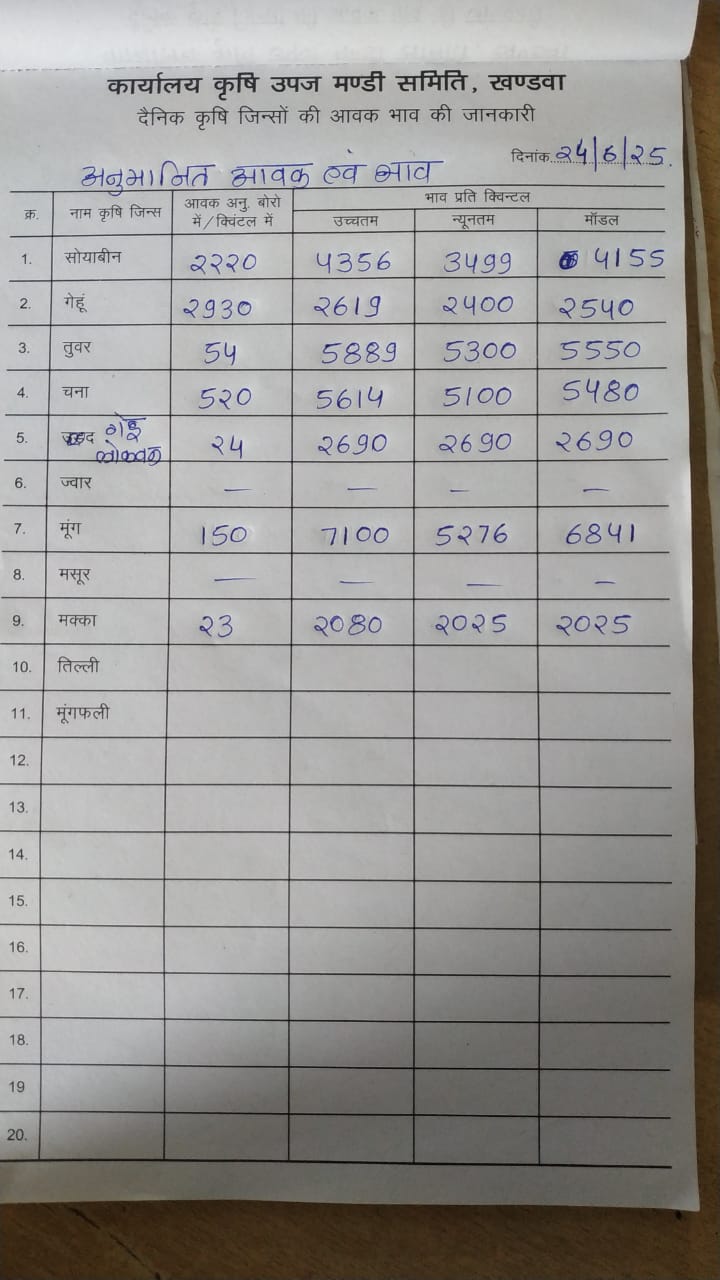 कार्यालय कृषि उपज मण्डी समिति, खण्डवा
दैनिक कृषि जिन्सों की आवक भाव की जानकारी
दिनांक २4/6/२5.
अनुमानित आवक एवं भाव
क्र. नाम कृषि जिन्स आवक अनु. बोरो में/क्विंटल में भाव प्रति क्विन्टल
उच्चतम न्यूनतम मॉडल
1. सोयाबीन २२२0 4356 3499 4155
2. गेहूं २930 २619 २400 २540
3. तुवर 54 5889 5300 5550
4. चना 5२0 5614 5100 5480
5. गेहू लोकवन २4 २690 २690 २690
6. ज्वार — — — —
7. मूंग 150 7100 5२76 6841
8. मसूर — — — —
9. मक्का २3 २080 २0२5 २0२5
10. तिल्ली
11. मूंगफली
12.
13.
14.
15.
16.
17.
18.
19
20.